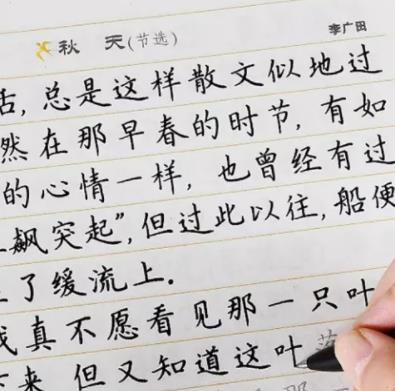 秋 天(节选) 李广田
活,总是这样散文似地过
然在那早春的时节,有如
的心情一样,也曾经有过
飙突起”,但过此以往,船便
了缓流上.
我真不愿看见那一只叶
来,但又知道这叶落